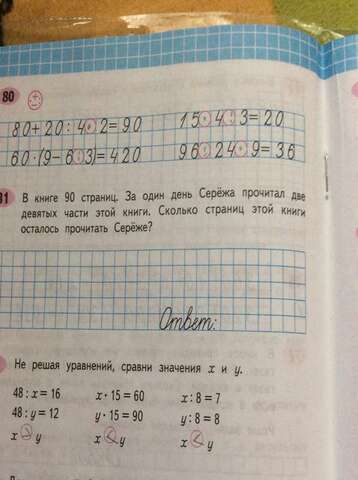 80
80+20:4·2=90 15·4:3=20
60:(9-6:3)=420 96:24·9=36
81 В книге 90 страниц. За один день Серёжа прочитал две
девятых части этой книги. Сколько страниц этой книги
осталось прочитать Серёже?
Ответ:
Не решая уравнений, сравни значения x и y.
48 : x = 16 x · 15 = 60 x : 8 = 7
48 : y = 12 y · 15 = 90 y : 8 = 8
x > y x < y x < y